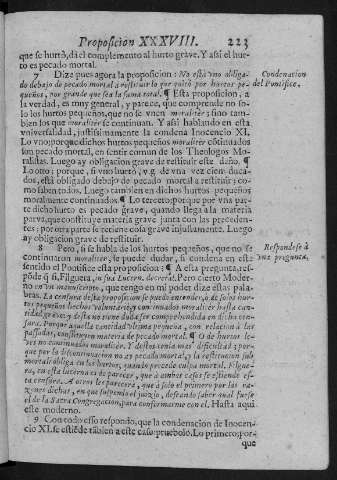 Proposicion XXXVIII. 223
que se hurtò, dà el complemento al hurto grave. Y assi el hur-
to es pecado mortal.
7 Dize pues agora la proposicion: No està vno obliga-
do debajo de pecado mortal à restituir lo que quitò por hurtos pe-
queños, por grande que sea la suma total. ¶ Esta proposicion, à
la verdad, es muy general, y parece, que comprende no so-
lo los hurtos pequeños, que no se vnen moraliter; sino tam-
bien los que moraliter se continuan. Y assi hablando en esta
vniversalidad, justissimamente la condena Inocencio XI.
Lo vno; porque dichos hurtos pequeños moraliter cõtinuados
son pecado mortal, en sentir comun de los Theologos Mo-
ralistas. Luego ay obligacion grave de restituir este daño. ¶
Lo otro; porque, si vno hurtò (v. g. de vna vez cien duca-
dos, està obligado debajo de pecado mortal à restituir: co-
mo saben todos. Luego tambien en dichos hurtos pequeños
moralmente continuados. ¶ Lo tercero; porque por vna par-
te dicho hurto es pecado grave, quando llega à la materia
parva, que constituye materia grave junta con las preceden-
tes: por otra parte se retiene cosa grave injustamente. Luego
ay obligacion grave de restituir.
8 Pero, si se habla de los hurtos pequeños, que no se
continuaron moraliter, se puede dudar, si condena en este
sentido el Pontifice esta proposicion: ¶ A esta pregunta, res-
põde q̃ si, Filguera, in sua Lucern. decretal. Pero cierto Moder-
no en vn manuscripto, que tengo en mi poder dize estas pala-
bras. La censura de la proposicion se puede entender, ò de solos hur-
tos pequeños hechos voluntarie, y continuados moraliter hasta can-
tidad grave: y desta no tiene duda ser comprehendida en dicha cen-
sura. Porque aquella cantidad vltima pequeña, con relacion à las
passadas, constituyen materia de pecado mortal. ¶ O de hurtos le-
ves no continuados moraliter. Y destos tenia mas dificultad; por-
que por la discontinuacion no ay pecado mortal; y la restitucion sub
mortali obliga en los hurtos, quando precede culpa mortal. Filgue-
ra, en esta lucerna es de parecer, que à ambos casos se estiende es-
ta censura. A otros les parecerà, que à solo el primero por las ra-
zones dichas, en que suspendo el juizio, deseando saber qual fuesse
el de la Sacra Congregacion, para conformarme con èl. Hasta aqui
este moderno.
9 Con todo esso respondo, que la condenacion de Inocen-
cio XI. se estiẽde tãbien à este caso: pruebolo. Lo primero; por-
que
Condenacion
del Pontifice.
Respondese à
vna pregunta.